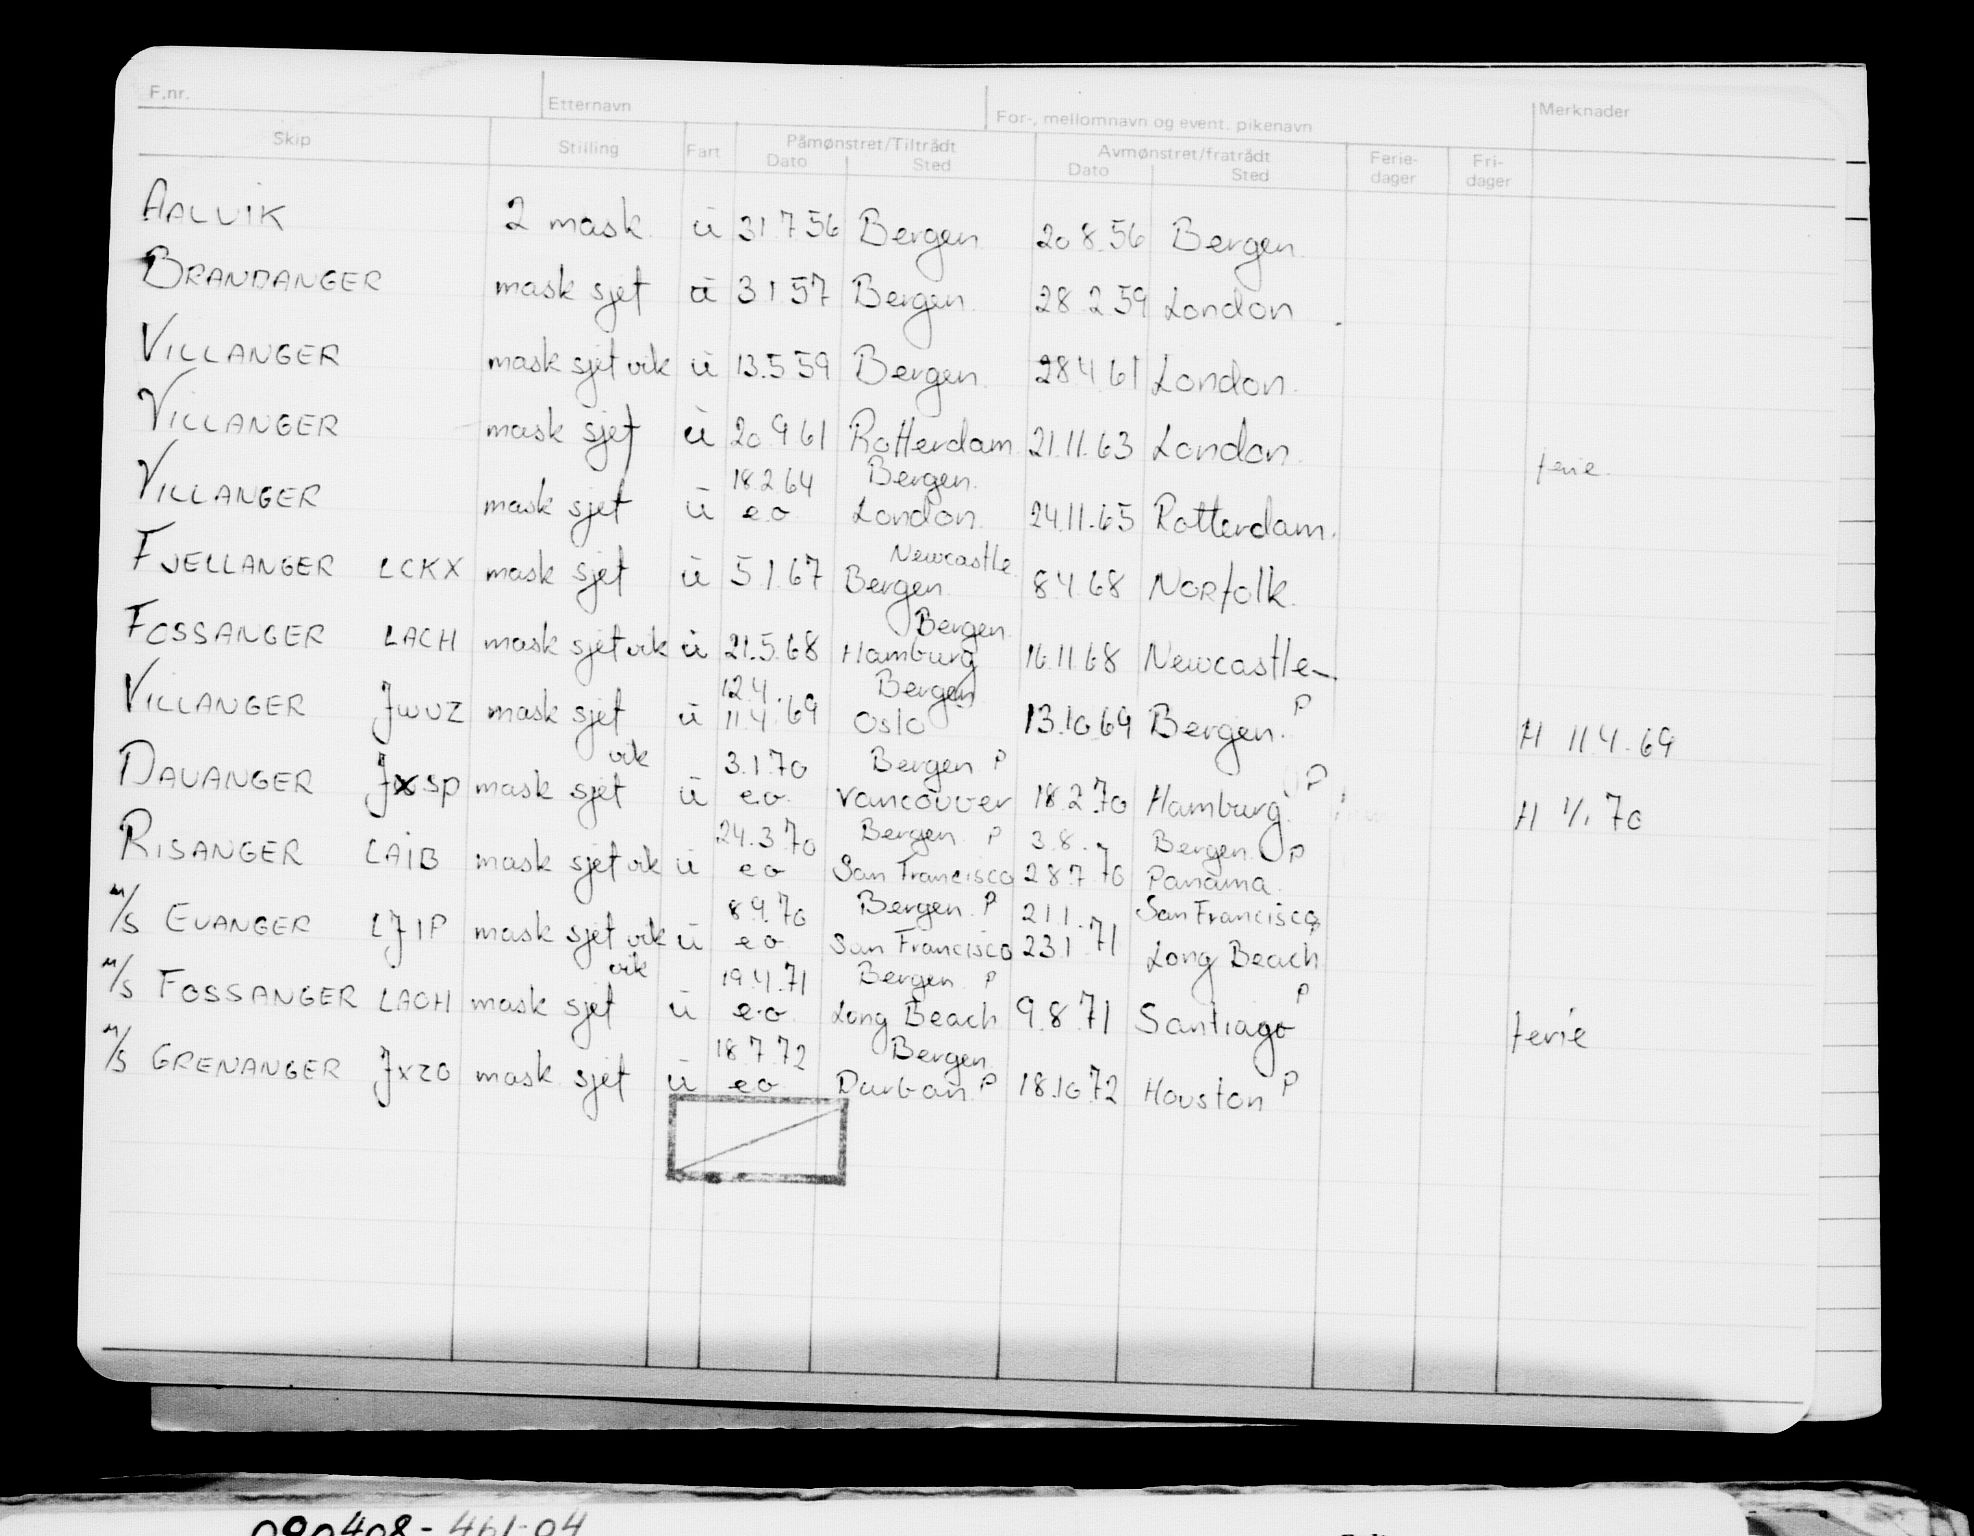 F.nr. Etternavn For-, mellomnavn og event. pikenavn Merknader
Skip Stilling Fart Påmønstret/Tiltrådt Avmønstret/fratrådt Ferie- Fri-
Dato Sted Dato Sted dager dager
AALVIK 2 mask. ü 31.7 56 Bergen 20 8.56 Bergen.
BRANDANGER mask sjef ü 3 1 57 Bergen. 28.2.59 London
VILLANGER mask sjef vik ü 13.5 59 Bergen. 28.4.61 London.
VILLANGER mask sjef ü 20.9 61 Rotterdam 21.11.63 London. ferie.
18.2.64 Bergen.
VILLANGER mask sjef ü e.o. London. 24.11.65 Rotterdam.
Newcastle
FJELLANGER LCKX mask sjef ü 5.1.67 Bergen. 8.4.68 Norfolk.
Bergen.
FOSSANGER LACH mask sjef vik ü 21.5.68 Hamburg 16.11.68 Newcastle
12.4. Bergen
VILLANGER JWUZ mask sjef ü 11.4.69 Oslo 13.10.69 Bergen. P H 11.4.69
vik 3.1.70 Bergen P
DAVANGER JXSP mask sjef ü e.o. Vancouver 18.2.70 Hamburg. P H 1/1 70
24.3.70 Bergen. P 3.8. Bergen. P
RISANGER LAIB mask sjef vik ü e o San Francisco 28.7.70 Panama.
8.9.70 Bergen. P 21.1. San Francisco
M/S EVANGER LJIP mask sjef vik ü e o San Francisco 23.1.71 Long Beach
vik 19.4.71 Bergen. P P
M/S FOSSANGER LACH mask sjef ü e.o. Long Beach 9.8.71 Santiago ferie
18.7.72 Bergen.
M/S GRENANGER JXZO mask. sjef ü e.o. Durban. P 18.10.72 Houston P
090408-461-04